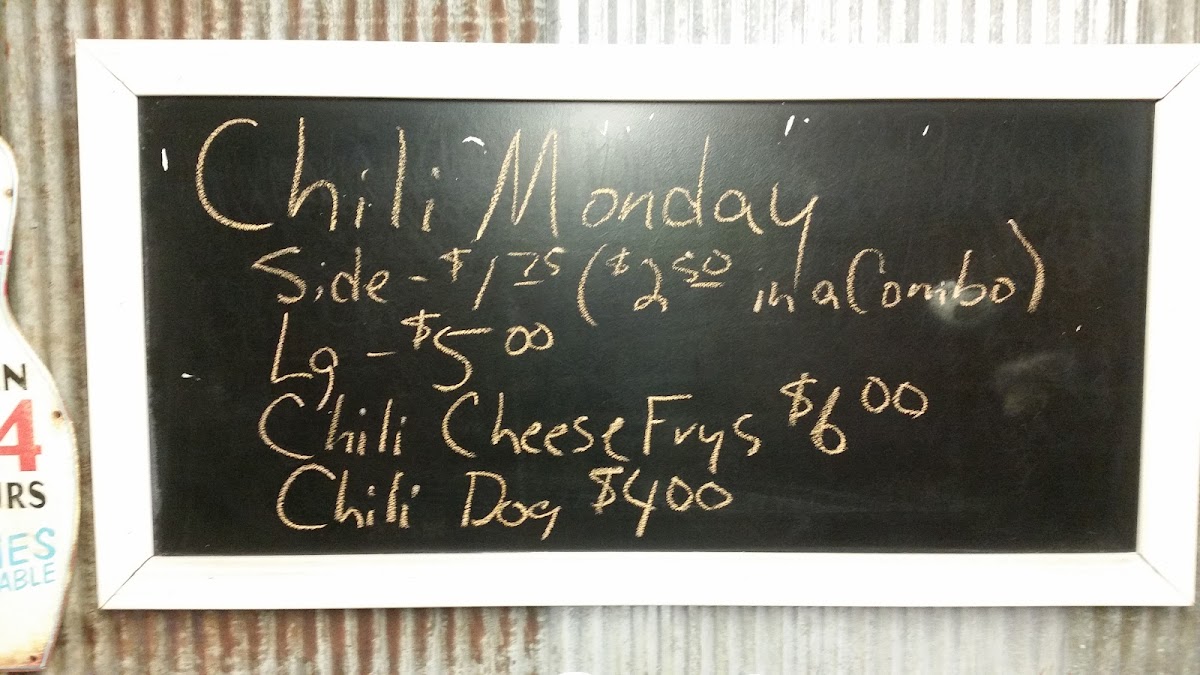 Chili Monday
Side - $1.75 ($2.50 in a Combo)
Lg - $5.00
Chili Cheese Frys $6.00
Chili Dog $400
N
4
URS
IES
ABLE